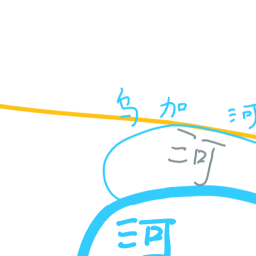 乌加河
河
河